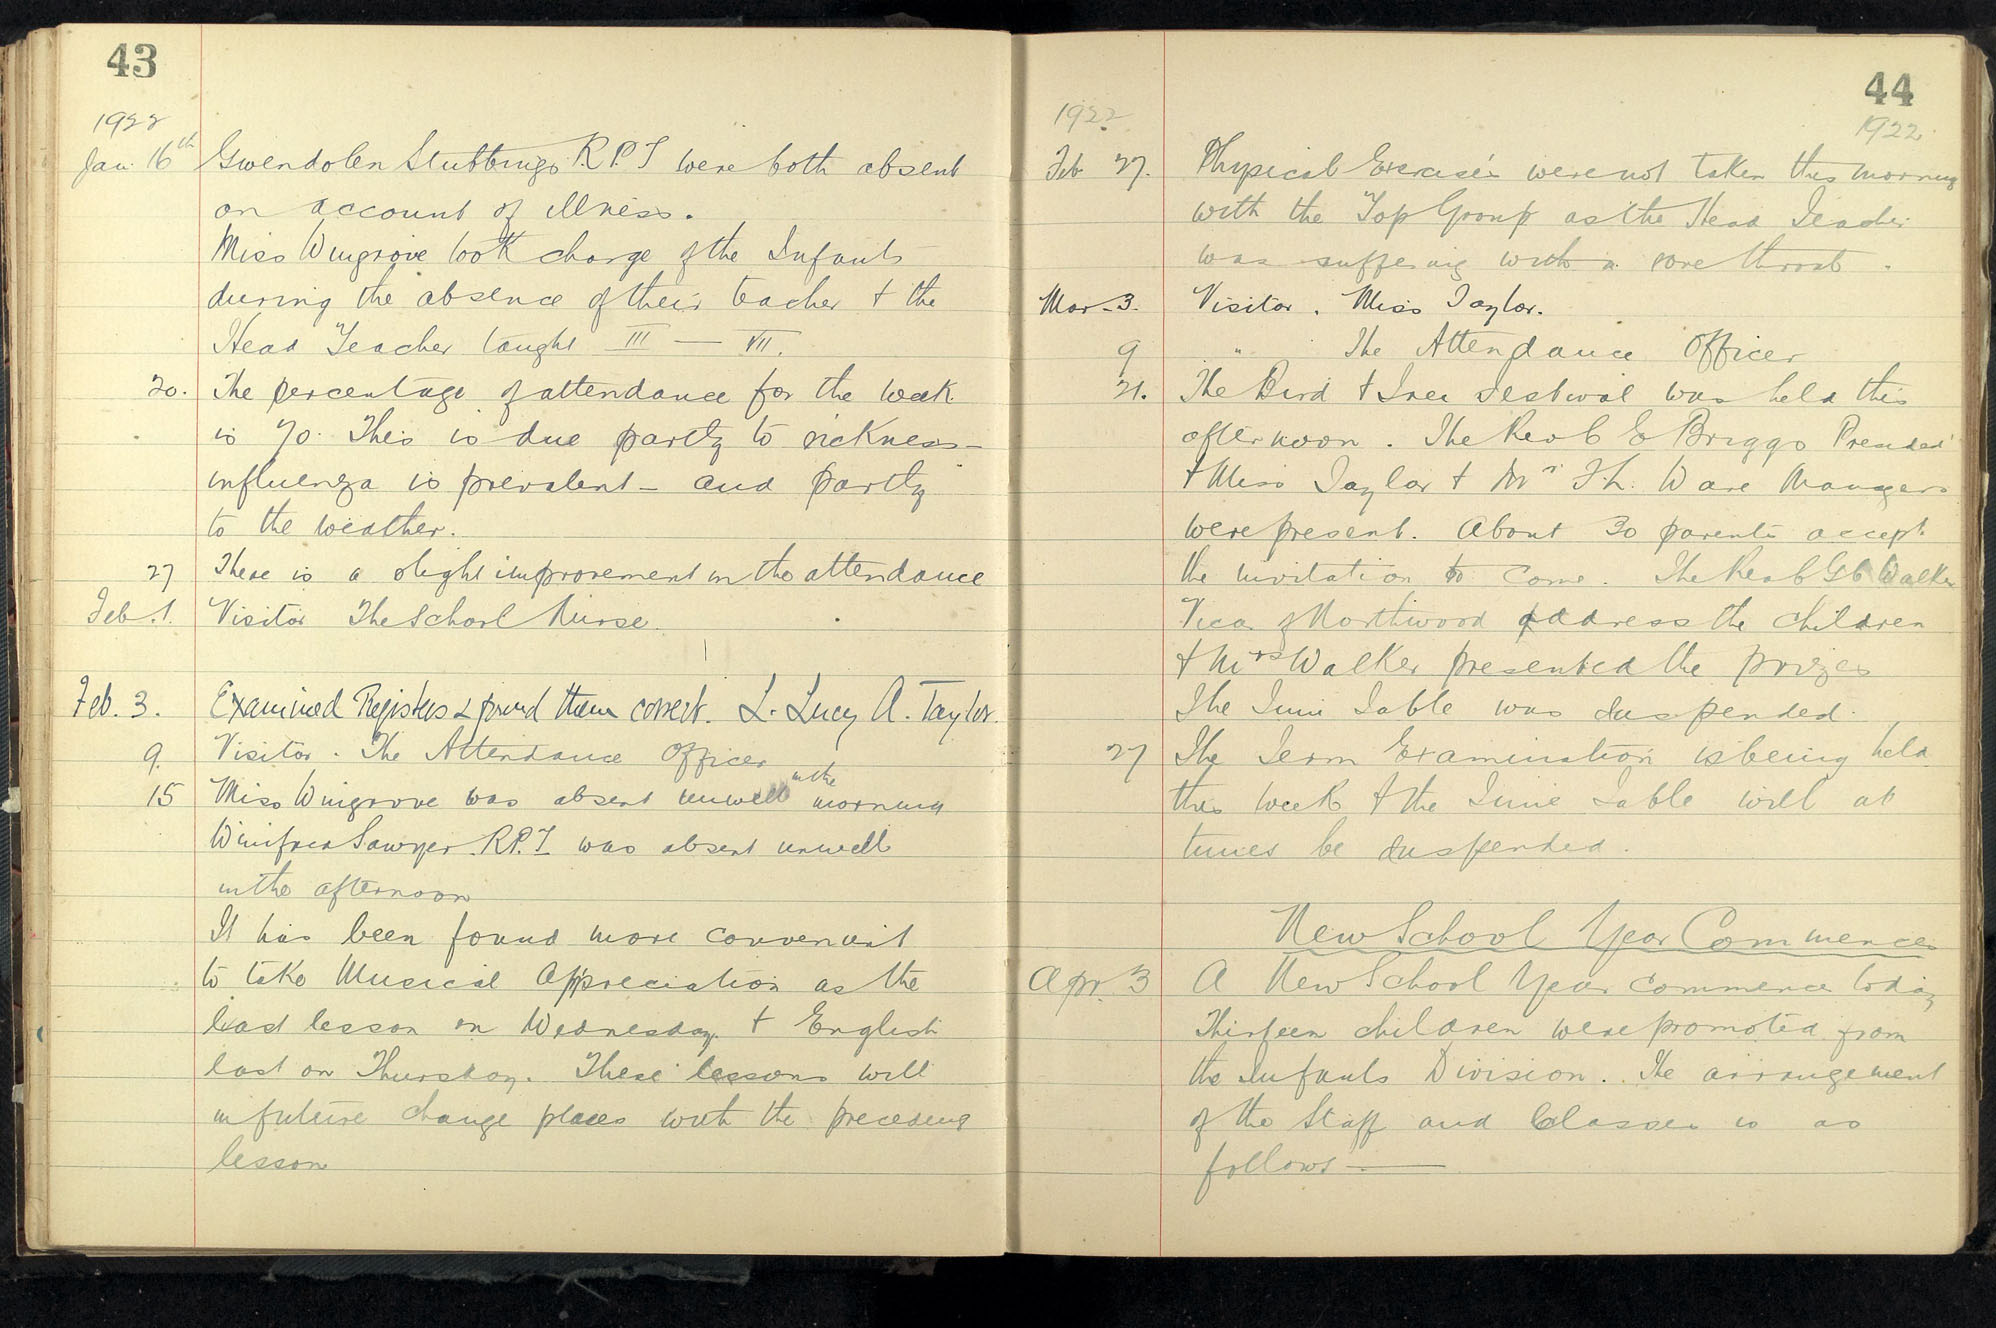 43
1922
Jan. 16th Gwendolen Stubbings R.P.T were both absent
on account of illness.
Miss Wingrove took charge of the Infants
during the absence of their teacher & the
Head Teacher taught III — VII.
20. The percentage of attendance for the week
is 70. This is due partly to sickness —
influenza is prevalent — and partly
to the weather.
27 There is a slight improvement in the attendance
Feb. 1. Visitor The School Nurse.
Feb. 3. Examined Registers & found them correct. L. Lucy A. Taylor.
9. Visitor. The Attendance Officer
15 Miss Wingrove was absent unwell in the morning
Winifred Sawyer R.P.T was absent unwell
in the afternoon
It has been found more convenient
to take Musical Appreciation as the
last lesson on Wednesday & English
last on Thursday. These lessons will
in future change places with the preceding
lesson
44
1922
1922.
Feb 27. Physical Exercises were not taken this morning
with the Top Group as the Head Teacher
was suffering with a sore throat.
Mar. 3. Visitor. Miss Taylor.
9 " The Attendance Officer
21. The Bird & Tree Festival was held this
afternoon. The Rev C E Briggs Presided
& Miss Taylor & Mr F.L. Ware Managers
were present. About 30 parents accept.
the invitation to come. The Rev Walker
Vicar of Northwood address the children
& Mrs Walker presented the prizes
The Time Table was suspended.
27 The Term Examination is being held
this week & the Time Table will at
times be suspended.
New School Year Commences
Apr. 3 A New School Year commence today
Thirteen children were promoted from
the Infants Division. The arrangement
of the Staff and Classes is as
follows —